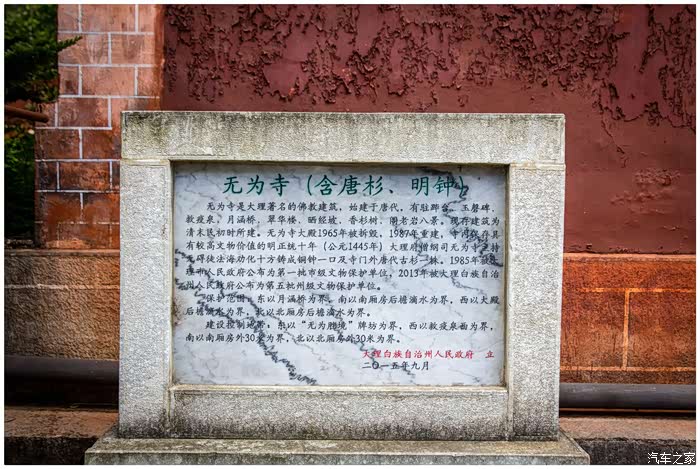 无为寺（含唐杉、明钟）
无为寺是大理著名的佛教建筑，始建于唐代，有驻跸台、玉磬碑、
救疫泉、月涵桥、翠华楼、晒经坡、香杉树、阁老岩八景。现存建筑为
清末民初时所建。无为寺大殿1965年被拆毁，1987年重建，寺内保存具
有较高文物价值的明正统十年（公元1445年）大理府僧纲司无为寺主持
无碍徒法海劝化十方铸成铜钟一口及寺门外唐代古杉一株。1985年被大
理市人民政府公布为第一批市级文物保护单位，2013年被大理白族自治
州人民政府公布为第五批州级文物保护单位。
保护范围：东以月涵桥为界，南以南厢房后檐滴水为界，西以大殿
后檐滴水为界，北以北厢房后檐滴水为界。
建设控制地带：东以“无为胜境”牌坊为界，西以救疫泉西为界，
南以南厢房外30米为界，北以北厢房外30米为界。
大理白族自治州人民政府 立
二〇一五年九月
汽车之家